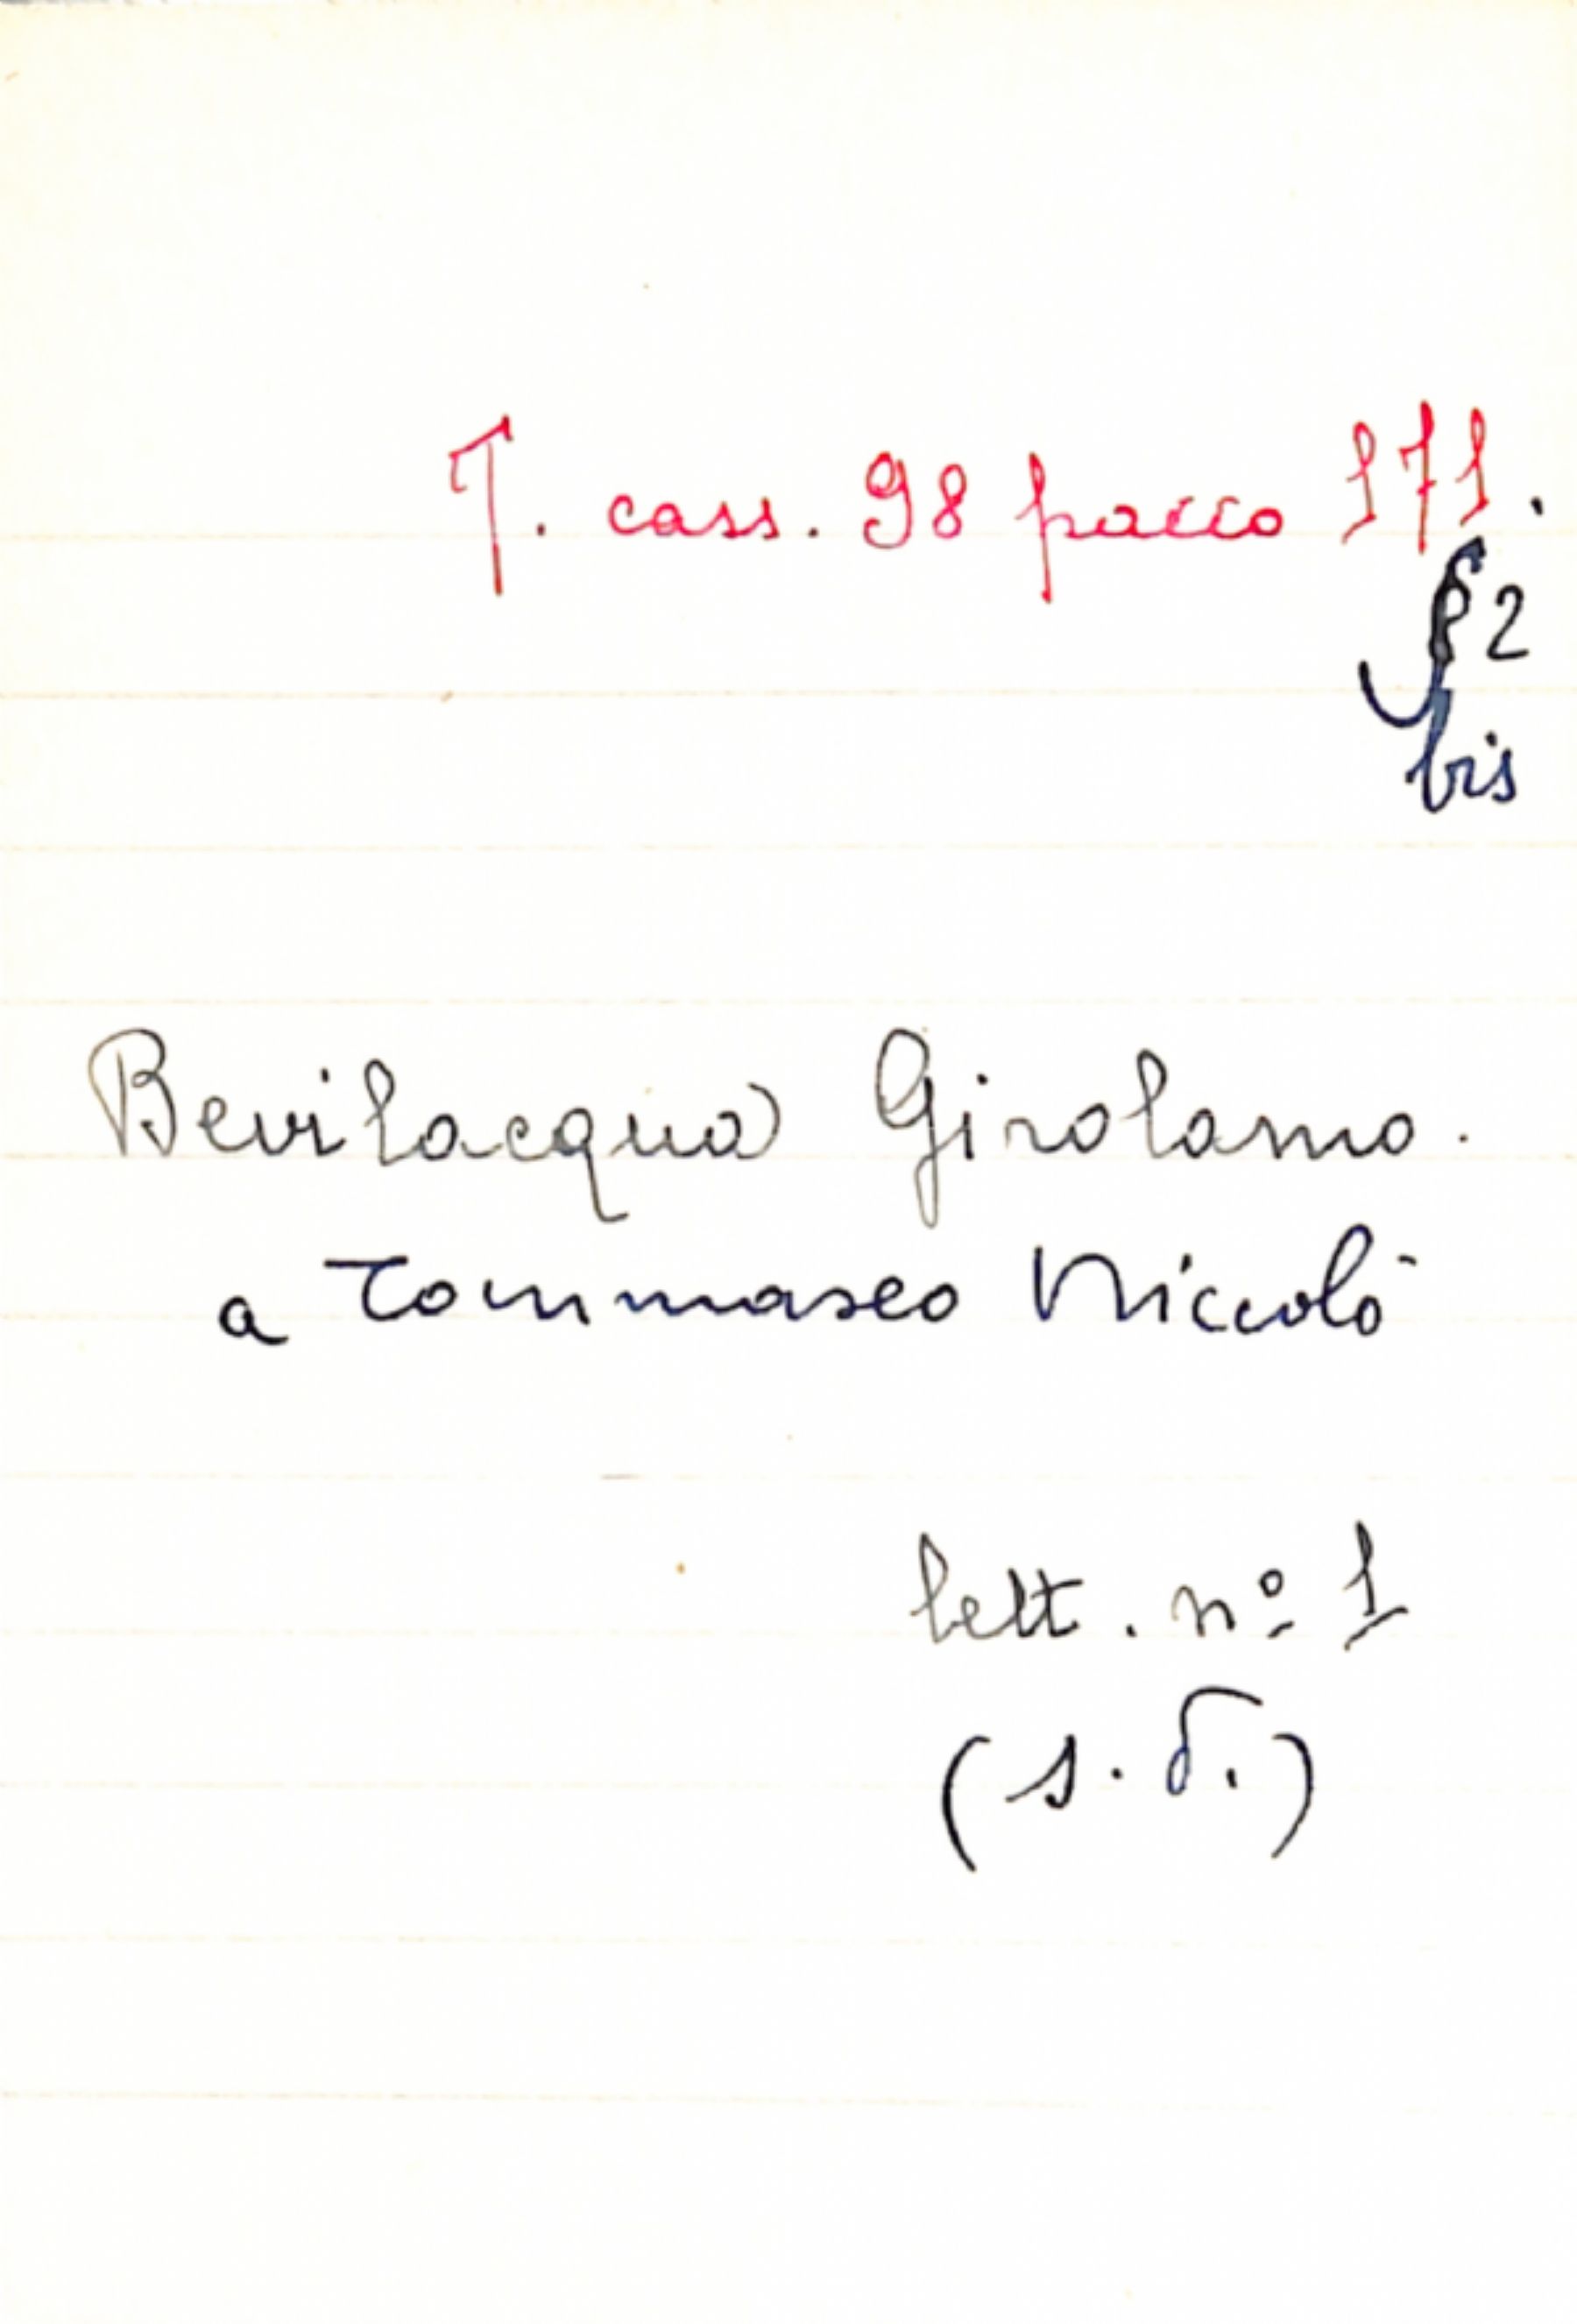 T. cass. 98 pacco 171.
2
bis
Bevilacqua Girolamo.
a Tommaseo Niccolò
lett. nº 1
(s. d.)